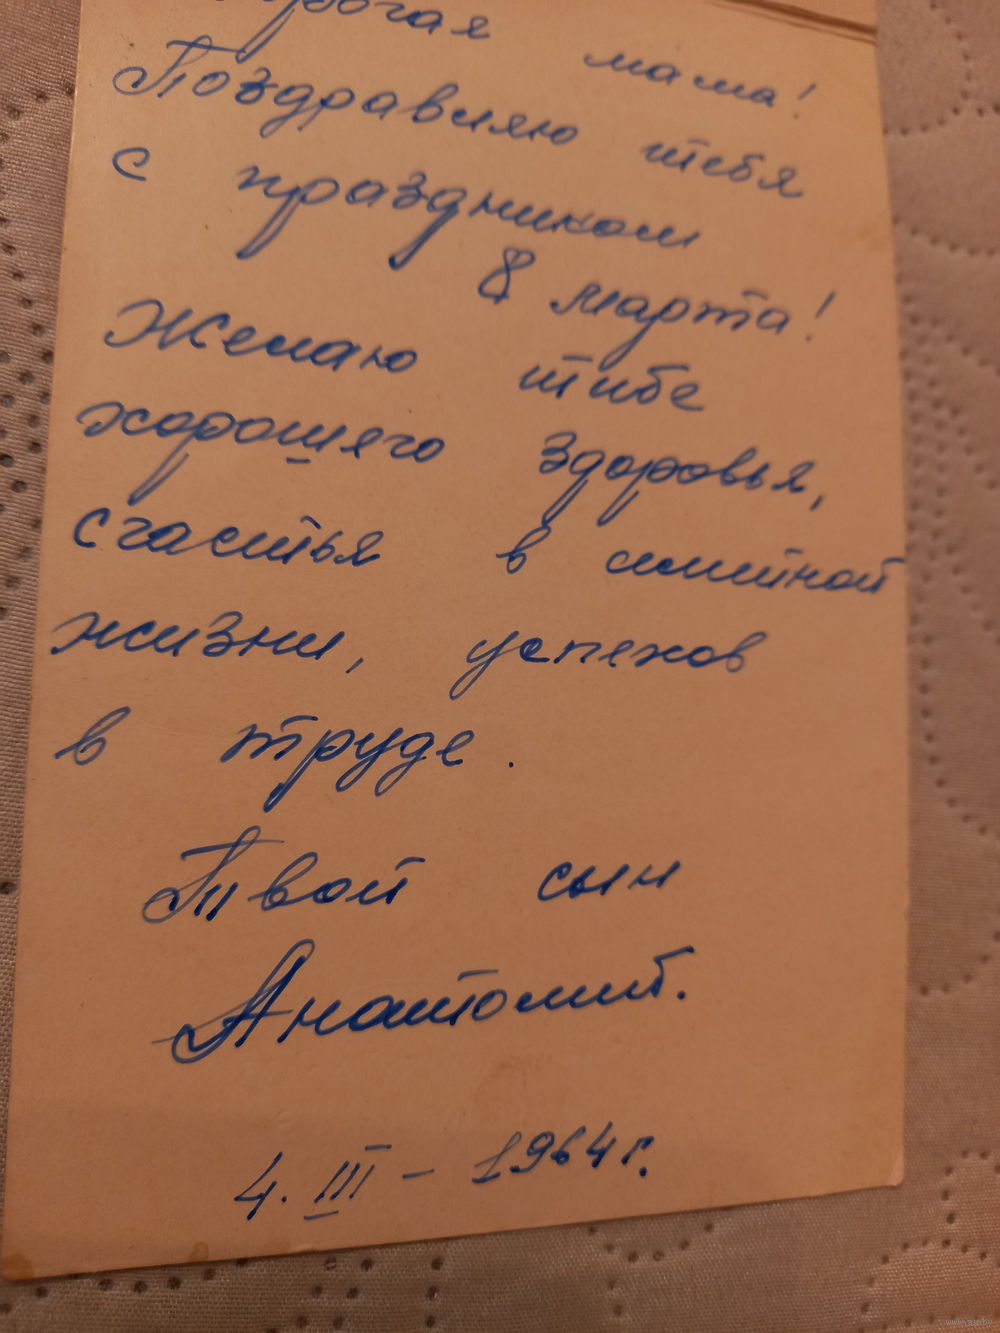 Дорогая мама!
Поздравляю тебя
с праздником
8 марта!
Желаю тибе
хорошяго здоровья,
счастья в симейной
жизни, успехов
в труде.
Твой сын
Анатолий.
4. III - 1964 г.